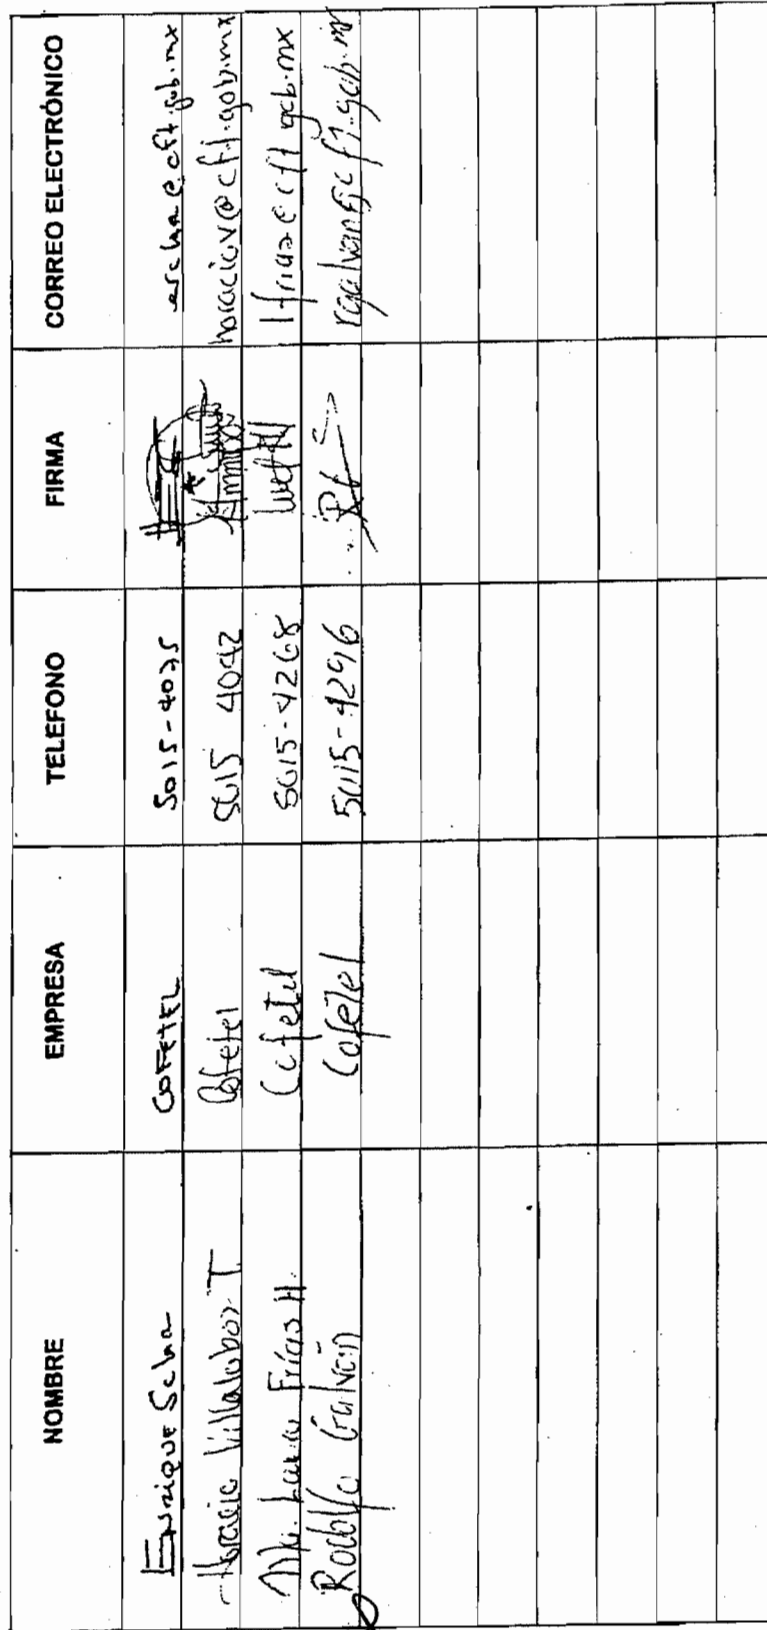 NOMBRE EMPRESA TELEFONO FIRMA CORREO ELECTRÓNICO
ENRIQUE Scha COFETEL 5015-4075
Horacio Villalobos T Cofetel 5015 4042 horaciov@cft.gob.mx
Ma. Laura Frías H. Cofetel 5015-4268 lfrias@cft.gob.mx
Rodolfo Galván Cofetel 5015-4296 rgalvan@cft.gob.mx